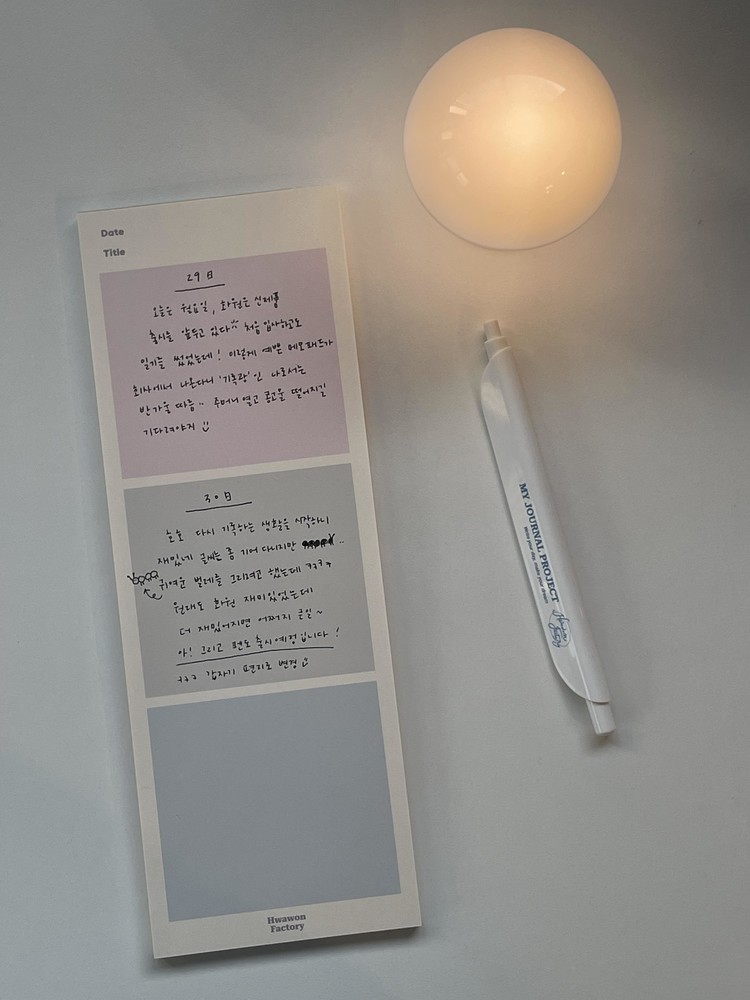 Date
Title
29日
오늘은 월요일, 화원은 신제품
출시를 앞두고 있다 처음 입사하고도
일기를 썼었는데! 이렇게 예쁜 메모패드가
회사에서 나온다니 '기록광'인 나로서는
반가울 따름.. 주머니 열고 공고문 떨어지길
기다려야지
30日
오늘 다시 기록하는 생활을 시작하니
재밌네 글씨는 좀 기어 다니지만 ..
귀여운 벌레를 그리려고 했는데 ㅋㅋㅋ
원래도 화원 재미있었는데
더 재밌어지면 어쩌지 큰일~
아! 그리고 펜도 출시예정입니다!
ㅋㅋㅋ 갑자기 편지로 변경
Hwawon
Factory
MY JOURNAL PROJECT